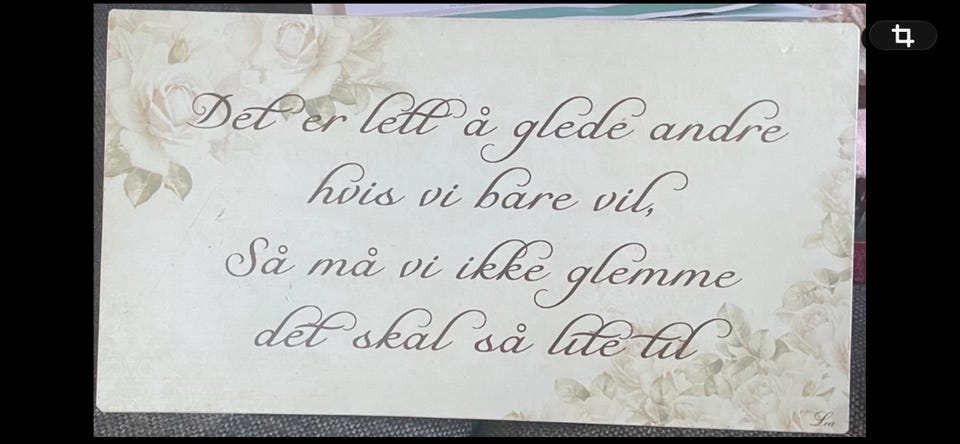 Det er lett å glede andre
hvis vi bare vil,
Så må vi ikke glemme
det skal så lite til